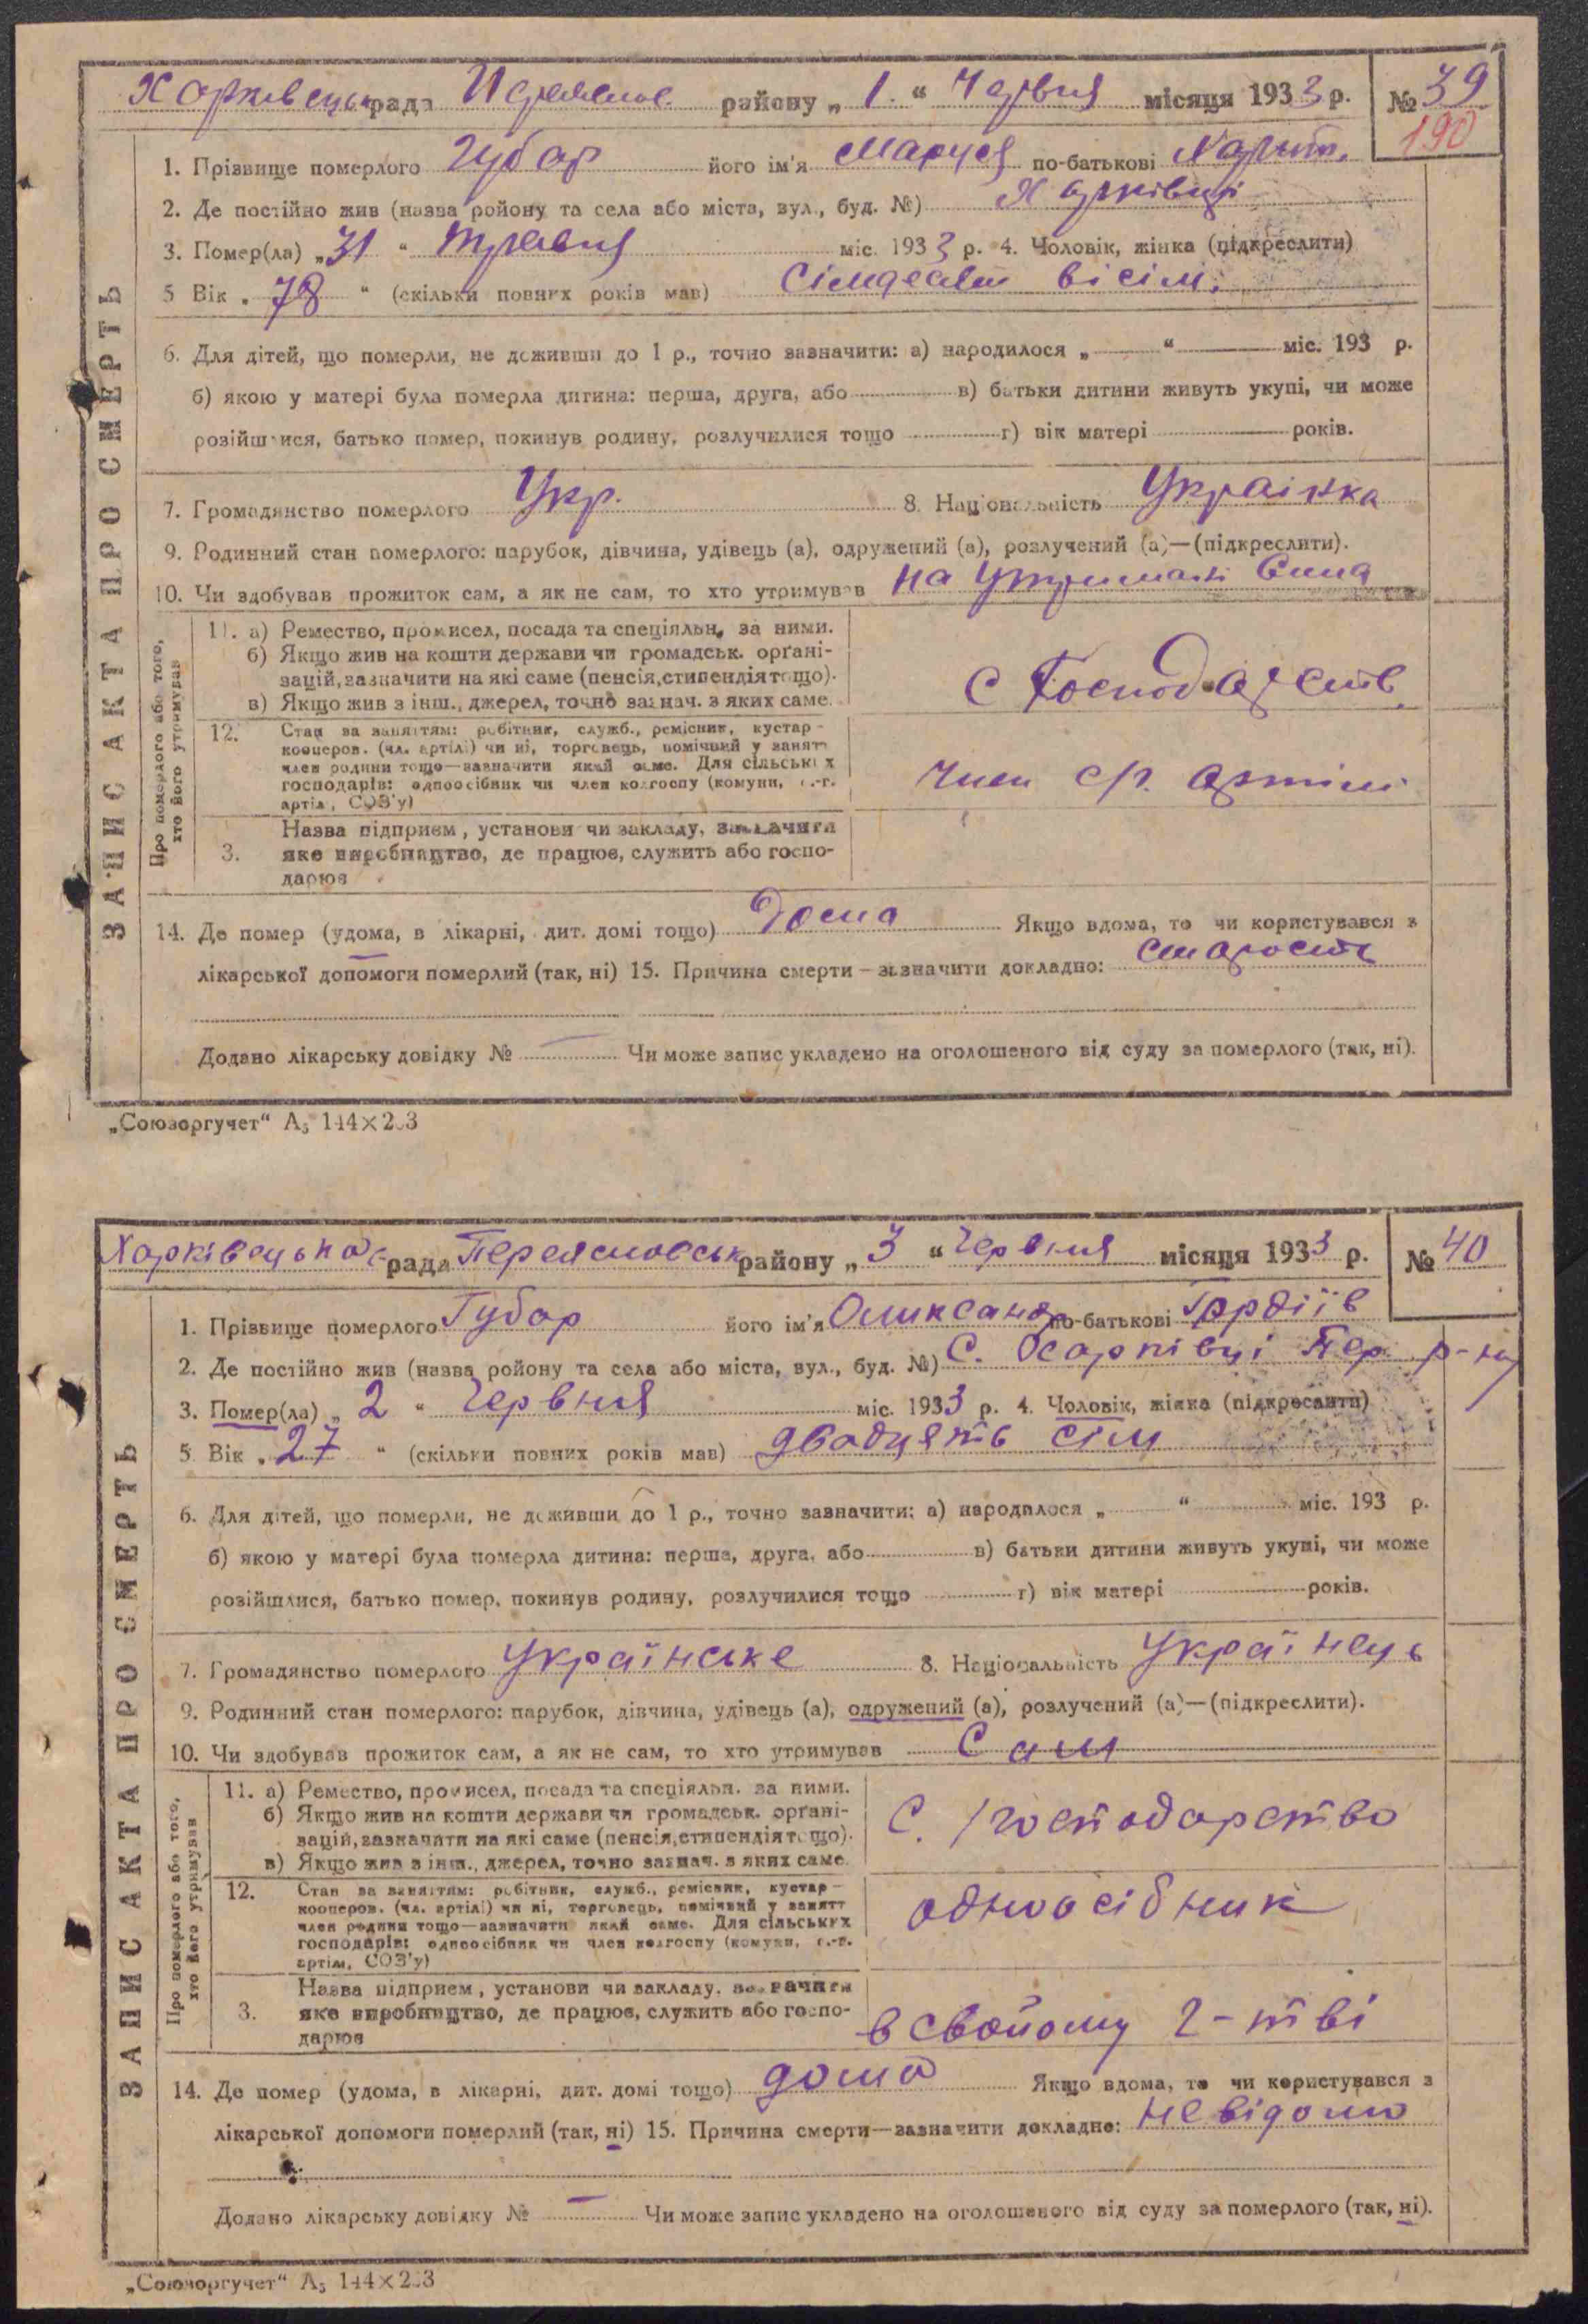 Харківецька рада Переяслов. району „ 1. “ Червня місяця 1933 р. № 39
190
1. Прізвище померлого Губар його ім'я Маруся по-батькові Харит.
2. Де постійно жив (назва ройону та села або міста, вул., буд. №) Харківці
3. Помер(ла) „31 “ травня міс. 1933 р. 4. Чоловік, жінка (підкреслити)
5 Вік „ 78 “ (скільки повних років мав) Сімдесят вісім.
6. Для дітей, що померли, не доживши до 1 р., точно зазначити: а) народилося „ “ міс. 193 р.
б) якою у матері була померла дитина: перша, друга, або в) батьки дитини живуть укупі, чи може
розійшлися, батько помер, покинув родину, розлучилися тощо г) вік матері років.
7. Громадянство померлого Укр. 8. Національність Українка
9. Родинний стан померлого: парубок, дівчина, удівець (а), одружений (а), розлучений (а)—(підкреслити).
10. Чи здобував прожиток сам, а як не сам, то хто утримував на утримані Сина
ЗАПИС АКТА ПРО СМЕРТЬ
Про померлого або того, хто його утримував
11. а) Ремество, промисел, посада та спеціяльн. за ними.
б) Якщо жив на кошти держави чи громадськ. орґані-
зацій, зазначити на які саме (пенсія, стипендія тощо).
в) Якщо жив з інш., джерел, точно зазнач. з яких саме.
С Господарств.
12. Стан за заняттям: робітник, служб., ремісник, кустар-
кооперов. (чл. артілі) чи ні, торговець, помічний у занятт
член родини тощо—зазначити який саме. Для сільських
господарів: одноосібник чи член колгоспу (комуни, с.-г.
артіл, СОЗ'у)
Член с/г. артіли
3. Назва підприєм, установи чи закладу, зазначити
яке виробництво, де працює, служить або госпо-
дарює
14. Де помер (удома, в лікарні, дит. домі тощо) Дома Якщо вдома, то чи користувався з
лікарської допомоги померлий (так, ні) 15. Причина смерти—зазначити докладно: старость
Додано лікарську довідку № Чи може запис укладено на оголошеного від суду за померлого (так, ні).
„Союзоргучет“ А5 144×203
Харківецька рада Переясловськ району „ 3 “ Червня місяця 1933 р. № 40
1. Прізвище померлого Губар його ім'я Олександ по-батькові Гордіїв
2. Де постійно жив (назва ройону та села або міста, вул., буд. №) С. Харківці Пер. р-ну
3. Помер(ла) „ 2 “ Червня міс. 1933 р. 4. Чоловік, жінка (підкреслити)
5 Вік „ 27 “ (скільки повних років мав) двадцять сім
6. Для дітей, що померли, не доживши до 1 р., точно зазначити: а) народилося „ “ міс. 193 р.
б) якою у матері була померла дитина: перша, друга, або в) батьки дитини живуть укупі, чи може
розійшлися, батько помер, покинув родину, розлучилися тощо г) вік матері років.
7. Громадянство померлого українське 8. Національність Українець
9. Родинний стан померлого: парубок, дівчина, удівець (а), одружений (а), розлучений (а)—(підкреслити).
10. Чи здобував прожиток сам, а як не сам, то хто утримував Сам
ЗАПИС АКТА ПРО СМЕРТЬ
Про померлого або того, хто його утримував
11. а) Ремество, промисел, посада та спеціяльн. за ними.
б) Якщо жив на кошти держави чи громадськ. орґані-
зацій, зазначити на які саме (пенсія, стипендія тощо).
в) Якщо жив з інш., джерел, точно зазнач. з яких саме.
С. /господарство
12. Стан за заняттям: робітник, служб., ремісник, кустар-
кооперов. (чл. артілі) чи ні, торговець, помічний у занятт
член родини тощо—зазначити який саме. Для сільських
господарів: одноосібник чи член колгоспу (комуни, с.-г.
артіл, СОЗ'у)
одноосібник
3. Назва підприєм, установи чи закладу, зазначити
яке виробництво, де працює, служить або госпо-
дарює
в своїому г-тві
14. Де помер (удома, в лікарні, дит. домі тощо) дома Якщо вдома, то чи користувався з
лікарської допомоги померлий (так, ні) 15. Причина смерти—зазначити докладно: невідомо
Додано лікарську довідку № Чи може запис укладено на оголошеного від суду за померлого (так, ні).
„Союзоргучет“ А5 144×203